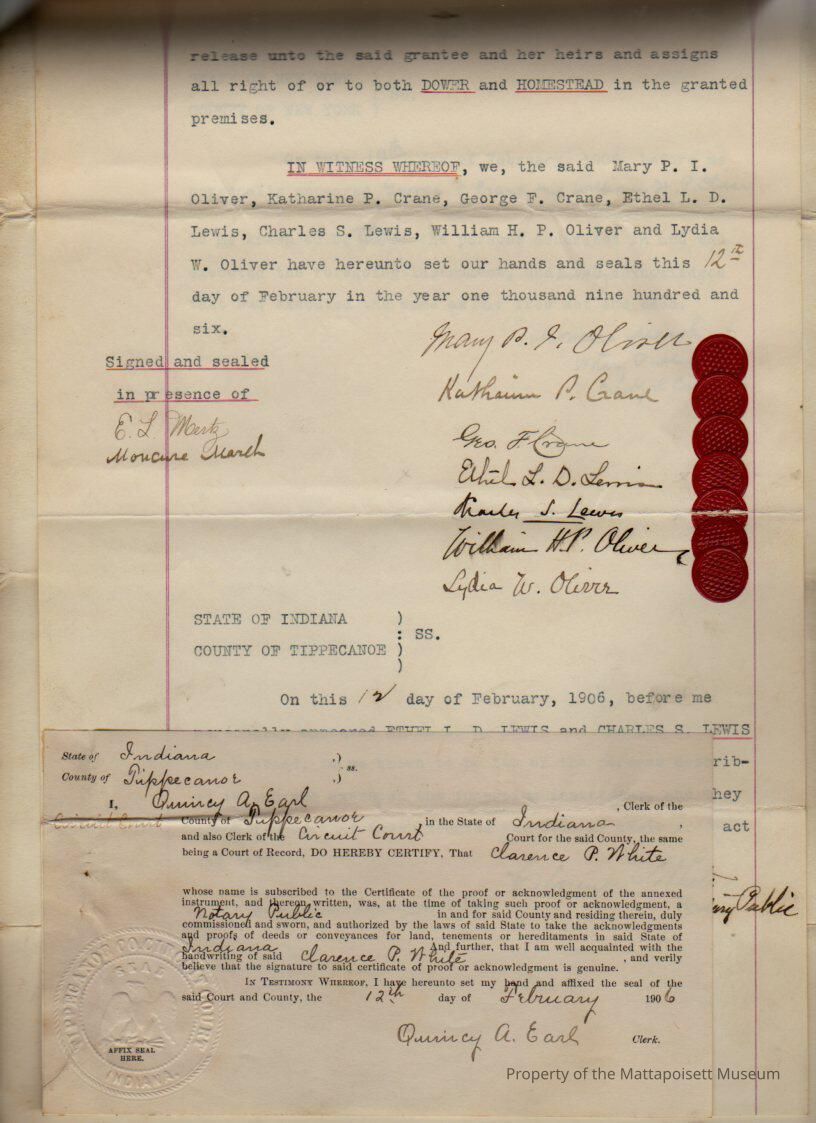 release unto the said grantee and her heirs and assigns
all right of or to both DOWER and HOMESTEAD in the granted
premises.
IN WITNESS WHEREOF, we, the said Mary P. I.
Oliver, Katharine P. Crane, George F. Crane, Ethel L. D.
Lewis, Charles S. Lewis, William H. P. Oliver and Lydia
W. Oliver have hereunto set our hands and seals this 12th
day of February in the year one thousand nine hundred and
six.
Mary P. I. Oliver
Signed and sealed
in presence of
Katharine P. Crane
E. L. Mertz
Geo. F. Crane
Moncure March
Ethel L. D. Lewis
Charles S. Lewis
William H. P. Oliver
Lydia W. Oliver
STATE OF INDIANA )
: SS.
COUNTY OF TIPPECANOE )
)
On this 12 day of February, 1906, before me
personally appeared ETHEL L. D. LEWIS and CHARLES S. LEWIS
rib-
hey
act
Public
State of Indiana } ss.
County of Tippecanoe }
I, Quincy A. Earl, Clerk of the
Circuit Court County of Tippecanoe, in the State of Indiana,
and also Clerk of the Circuit Court Court for the said County, the same
being a Court of Record, DO HEREBY CERTIFY, That Clarence P. White
whose name is subscribed to the Certificate of the proof or acknowledgment of the annexed
instrument, and thereon written, was, at the time of taking such proof or acknowledgment, a
Notary Public in and for said County and residing therein, duly
commissioned and sworn, and authorized by the laws of said State to take the acknowledgments
and proofs of deeds or conveyances for land, tenements or hereditaments in said State of
Indiana And further, that I am well acquainted with the
handwriting of said Clarence P. White, and verily
believe that the signature to said certificate of proof or acknowledgment is genuine.
IN TESTIMONY WHEREOF, I have hereunto set my hand and affixed the seal of the
said Court and County, the 12th day of February 1906
Quincy A. Earl Clerk.
AFFIX SEAL
HERE.
INDIANA
Property of the Mattapoisett Museum